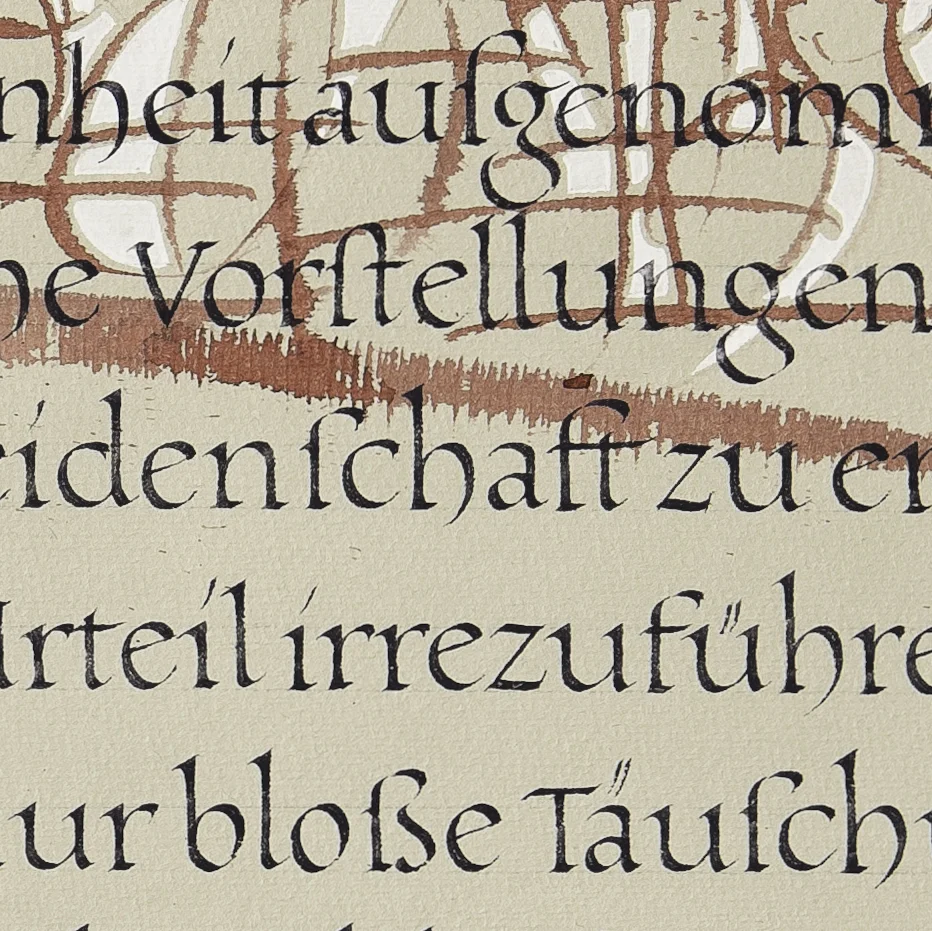 nheit auſgenom
he Vorſtellungen
eidenſchaft zu er
rteil irrezuführe
ur bloße Täuſch